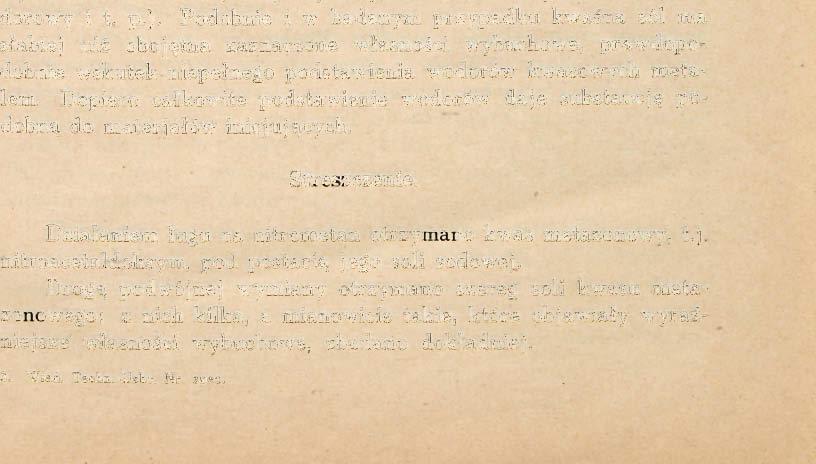 i t. p.). Podobnie i w badanym przypadku kwaśna sól ma
niż obojętna zaznaczone własności wybuchowe, prawdopo-
dobnie wskutek niepełnego podstawienia wodorów kwasowych meta-
lem. Dopiero całkowite podstawienie wodorów daje substancję po-
dobną do materjałów inicjujących.
Streszczenie.
Działaniem ługu na nitrometan otrzymano kwas metazonowy, t. j.
pod postacią jego soli sodowej.
Drogą podwójnej wymiany otrzymano szereg soli kwasu meta-
zonowego; z nich kilka, a mianowicie takie, które objawiały wyraź-
niejsze własności wybuchowe, zbadano dokładniej.
Techn. Nr.